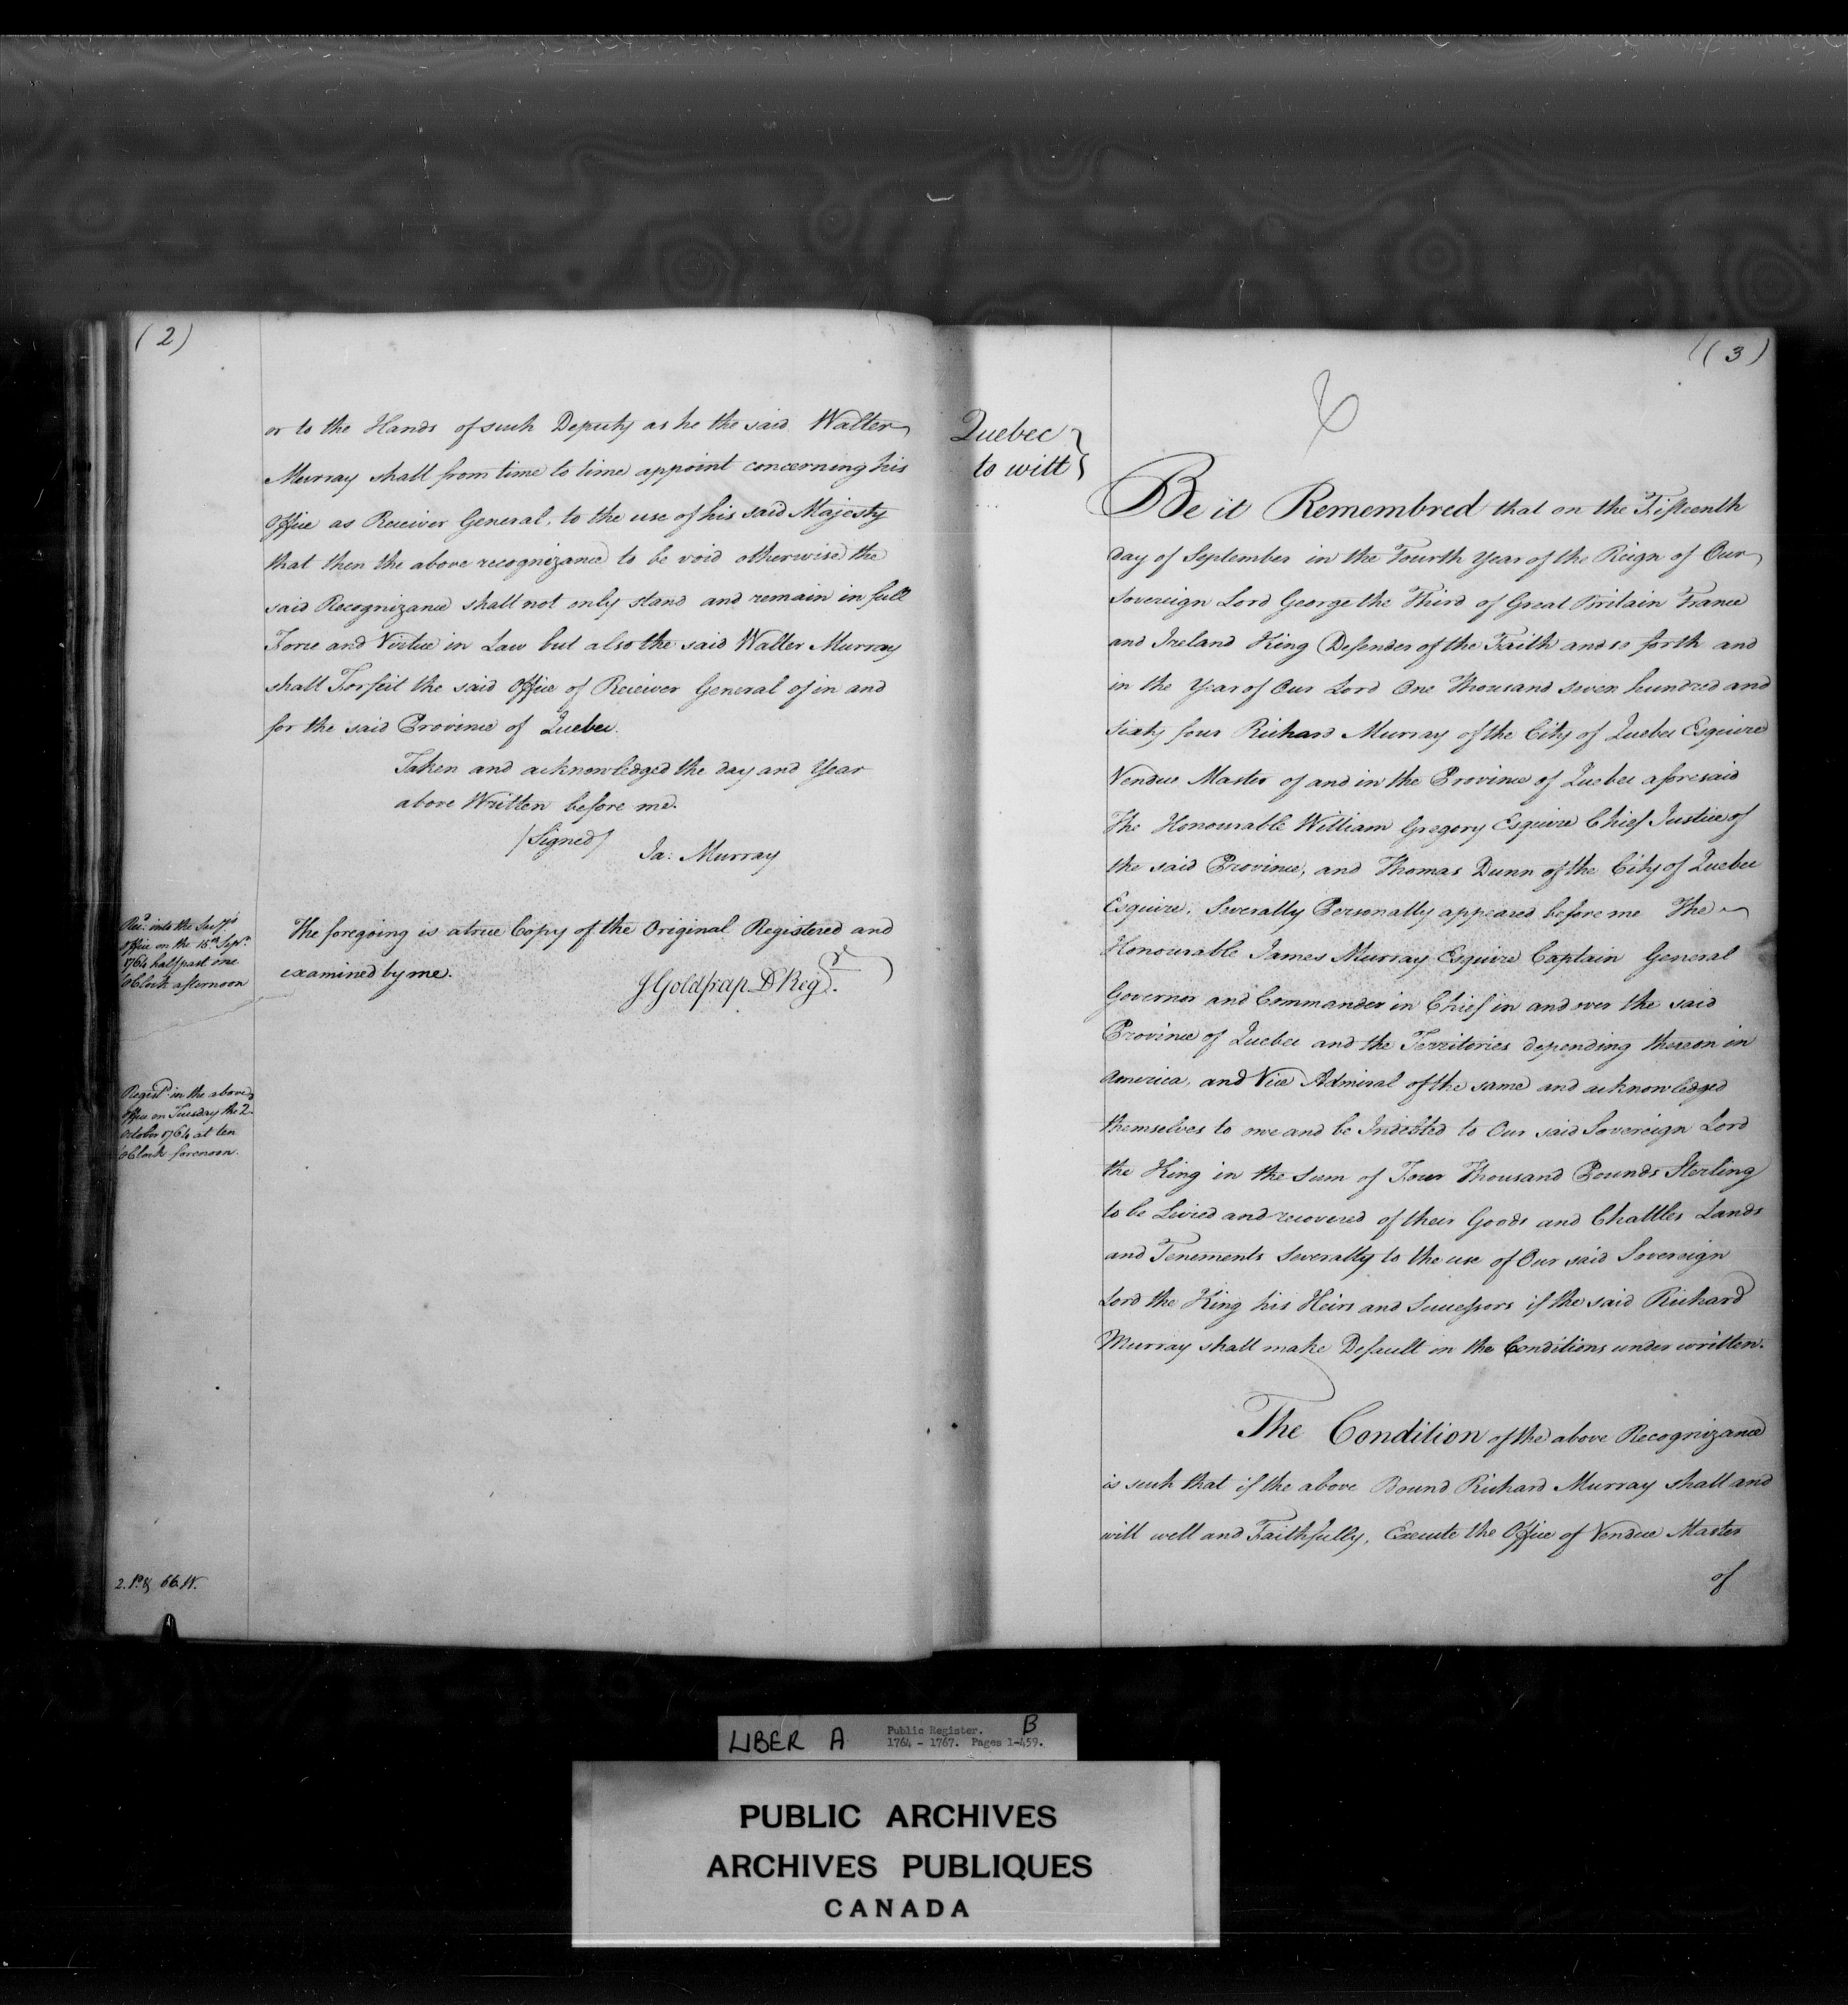 (2)
or to the Hands of such Deputy as he the said Walter
Murray shall from time to time appoint concerning his
Office as Receiver General, to the use of his said Majesty
that then the above recognizance to be void otherwise the
said Recognizance shall not only stand and remain in full
Force and Virtue in Law but also the said Walter Murray
shall Forfeit the said Office of Receiver General of in and
for the said Province of Quebec.
Taken and acknowledged the day and Year
above Written before me.
/Signed/ Ja: Murray
Recd. into the Secys
Office on the 15th Sepr.
1764 half past one
o'Clock afternoon
The foregoing is a true Copy of the Original Registered and
examined by me.
J Goldfrap D Regr.
Registd. in the above
Office on Tuesday the 2.
October 1764 at ten
o'Clock forenoon.
2. Ps. & 66. W.
(3)
Quebec }
to witt }
Be it Remembred that on the Fifteenth
day of September in the Fourth Year of the Reign of Our
Sovereign Lord George the Third of Great Britain France
and Ireland King Defender of the Faith and so forth and
in the Year of Our Lord One Thousand seven hundred and
sixty four Richard Murray of the City of Quebec Esquire
Vendue Master of and in the Province of Quebec aforesaid
The Honourable William Gregory Esquire Chief Justice of
the said Province, and Thomas Dunn of the City of Quebec
Esquire. Severally Personally appeared before me The
Honourable James Murray Esquire Captain General
Governor and Commander in Chief in and over the said
Province of Quebec and the Territories depending thereon in
America, and Vice Admiral of the same and acknowledged
themselves to owe and be Indebted to Our said Sovereign Lord
the King in the Sum of Four Thousand Pounds Sterling
to be Levied and recovered of their Goods and Chattles Lands
and Tenements Severally to the use of Our said Sovereign
Lord the King his Heirs and Successors if the said Richard
Murray shall make Default in the Conditions under written.
The Condition of the above Recognizance
is such that if the above Bound Richard Murray shall and
will well and Faithfully, Execute the Office of Vendue Master
of
LIBER A Public Register. B
1764 - 1767. Pages 1-459.
PUBLIC ARCHIVES
ARCHIVES PUBLIQUES
CANADA